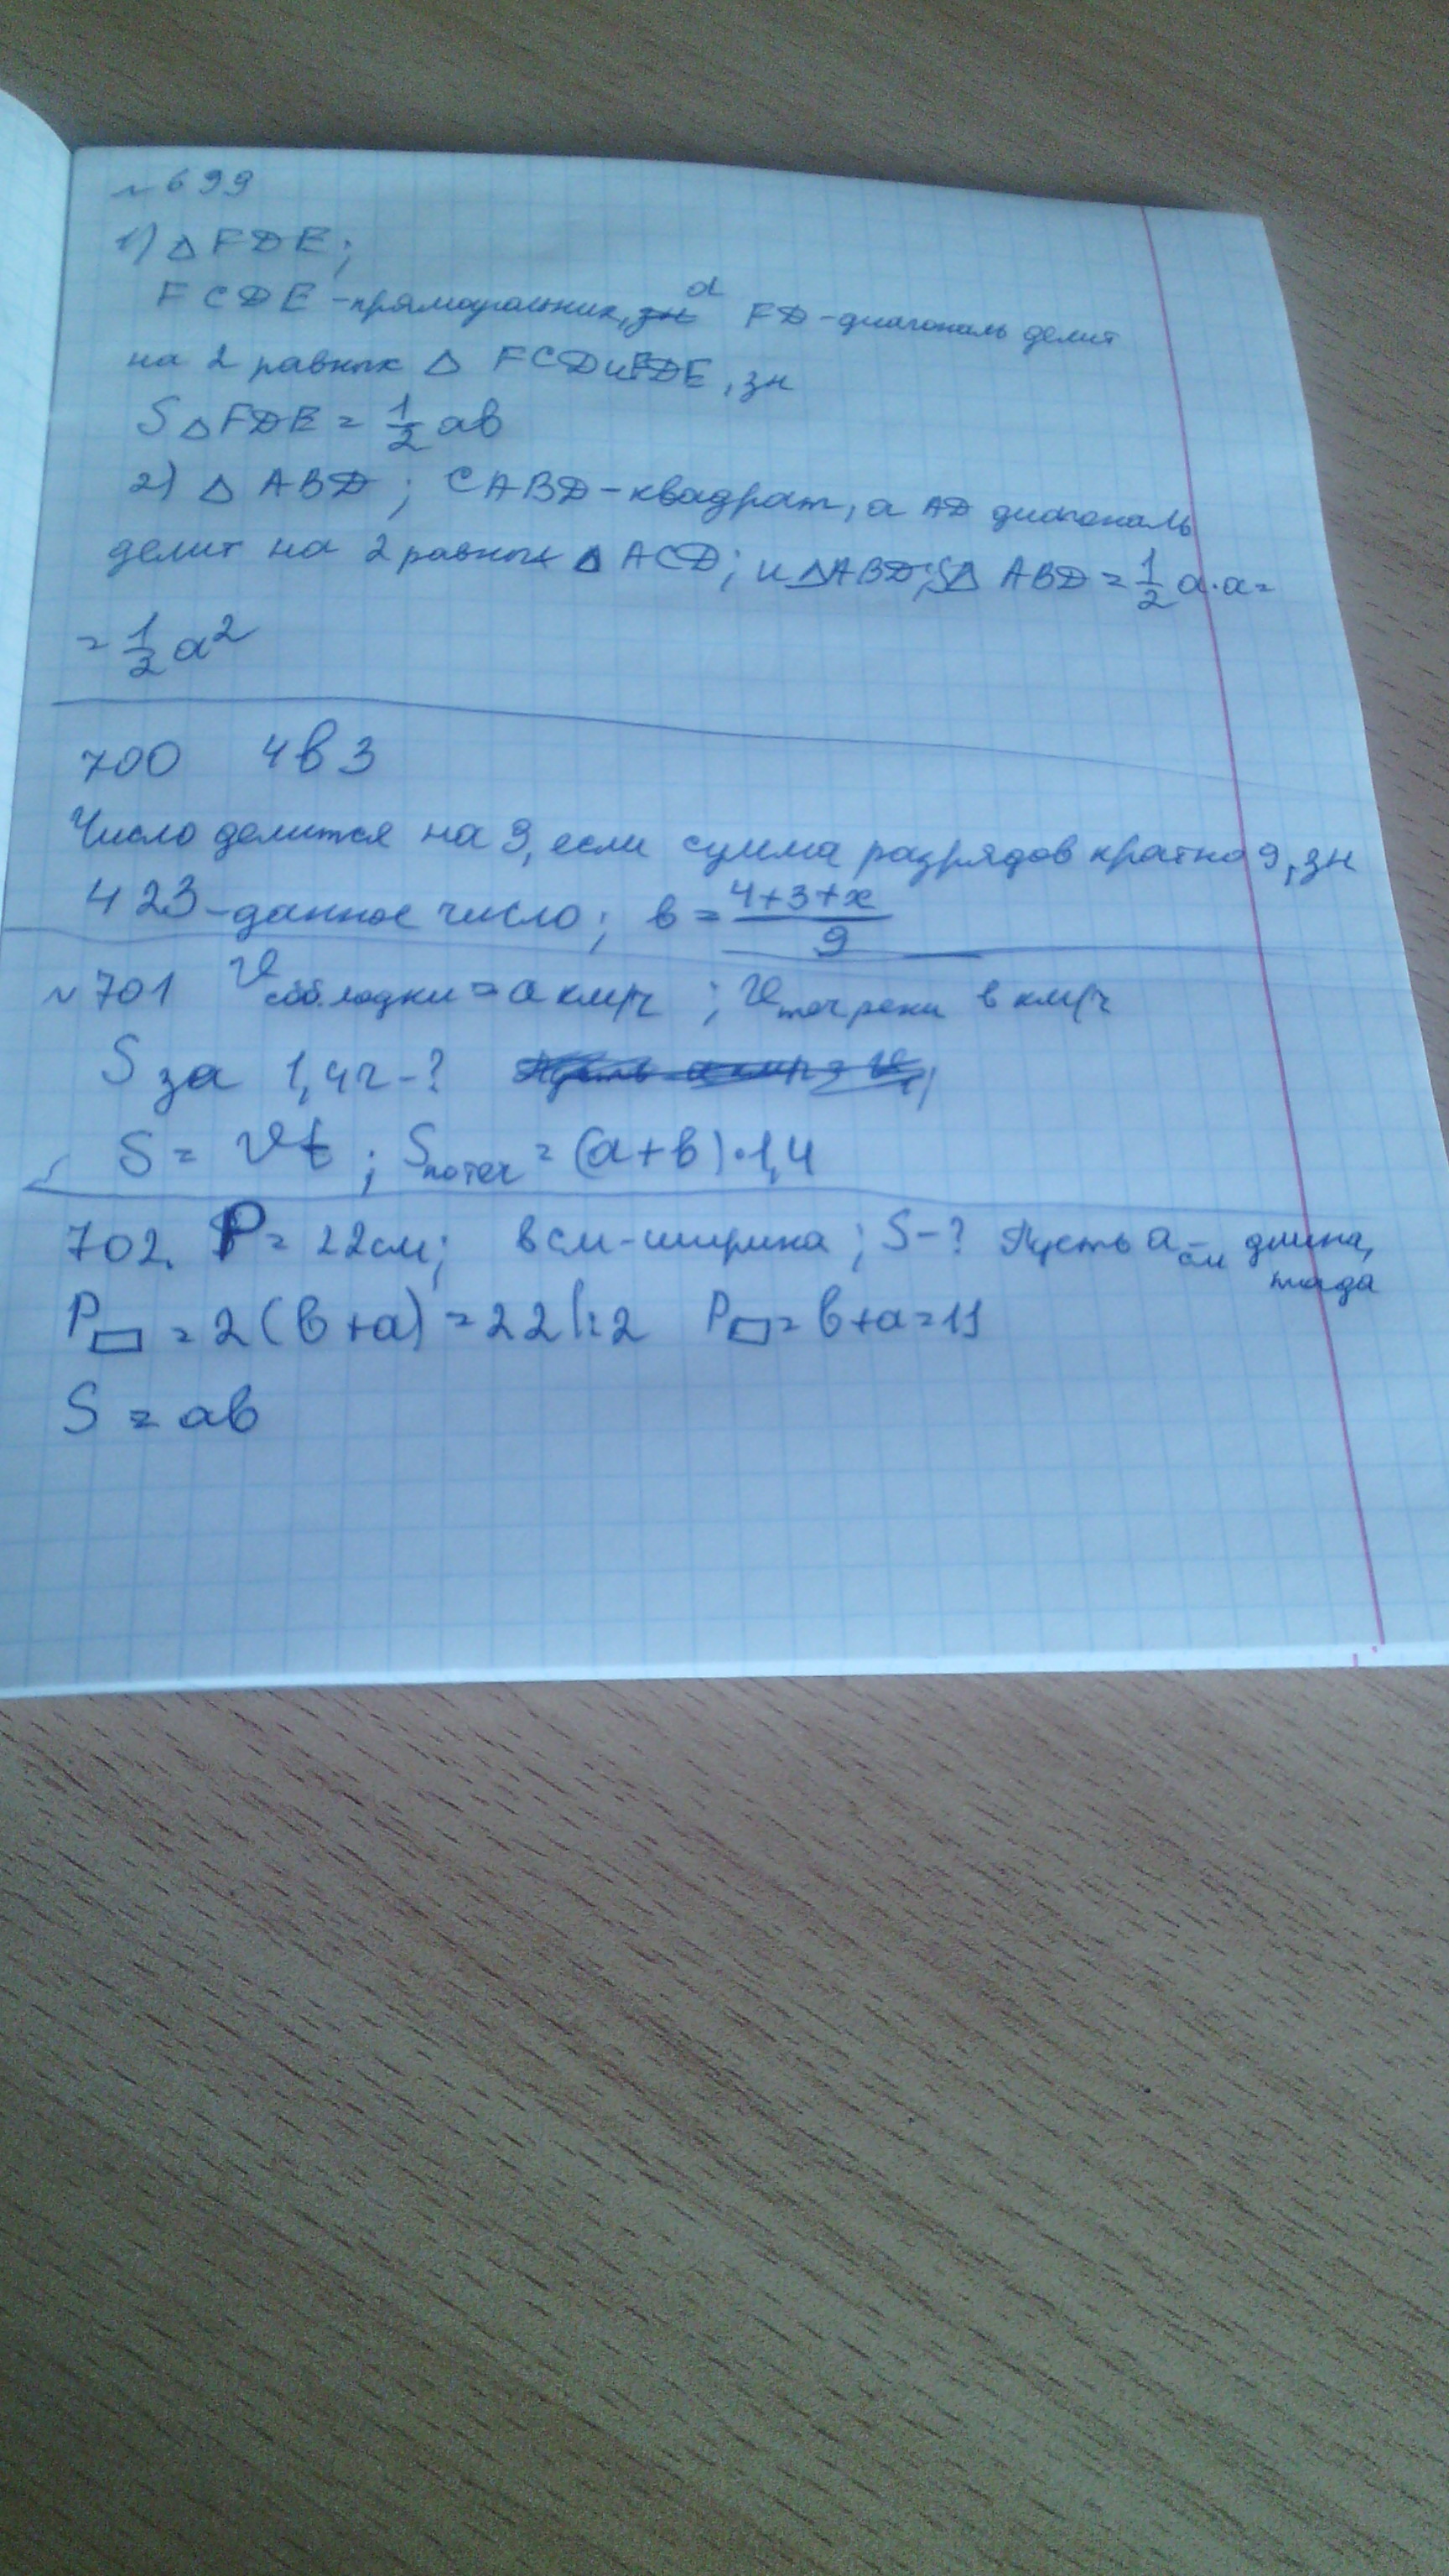 ~699
1) △FDE;
FCDE - прямоугольник, а FD - диагональ делит
на 2 равных △ FCD и FDE, зн
S△FDE = 1/2 ab
2) △ ABD; CABD - квадрат, а AD диагональ
делит на 2 равных △ ACD; и △ABD; S△ ABD = 1/2 a·a =
= 1/2 a²
700 4в3
Число делится на 9, если сумма разрядов кратно 9, зн
423 - данное число; в = (4+3+x)/9
~701 V соб.лодки = a км/ч ; V теч реки в км/ч
S за 1,4ч - ?
S = Vt ; S по теч = (a+в)·1,4
702. P = 22см; в см - ширина; S - ? Пусть a см - длина,
тогда
P▭ = 2(в+a) = 22 |:2 P▭ = в+a = 11
S = aв